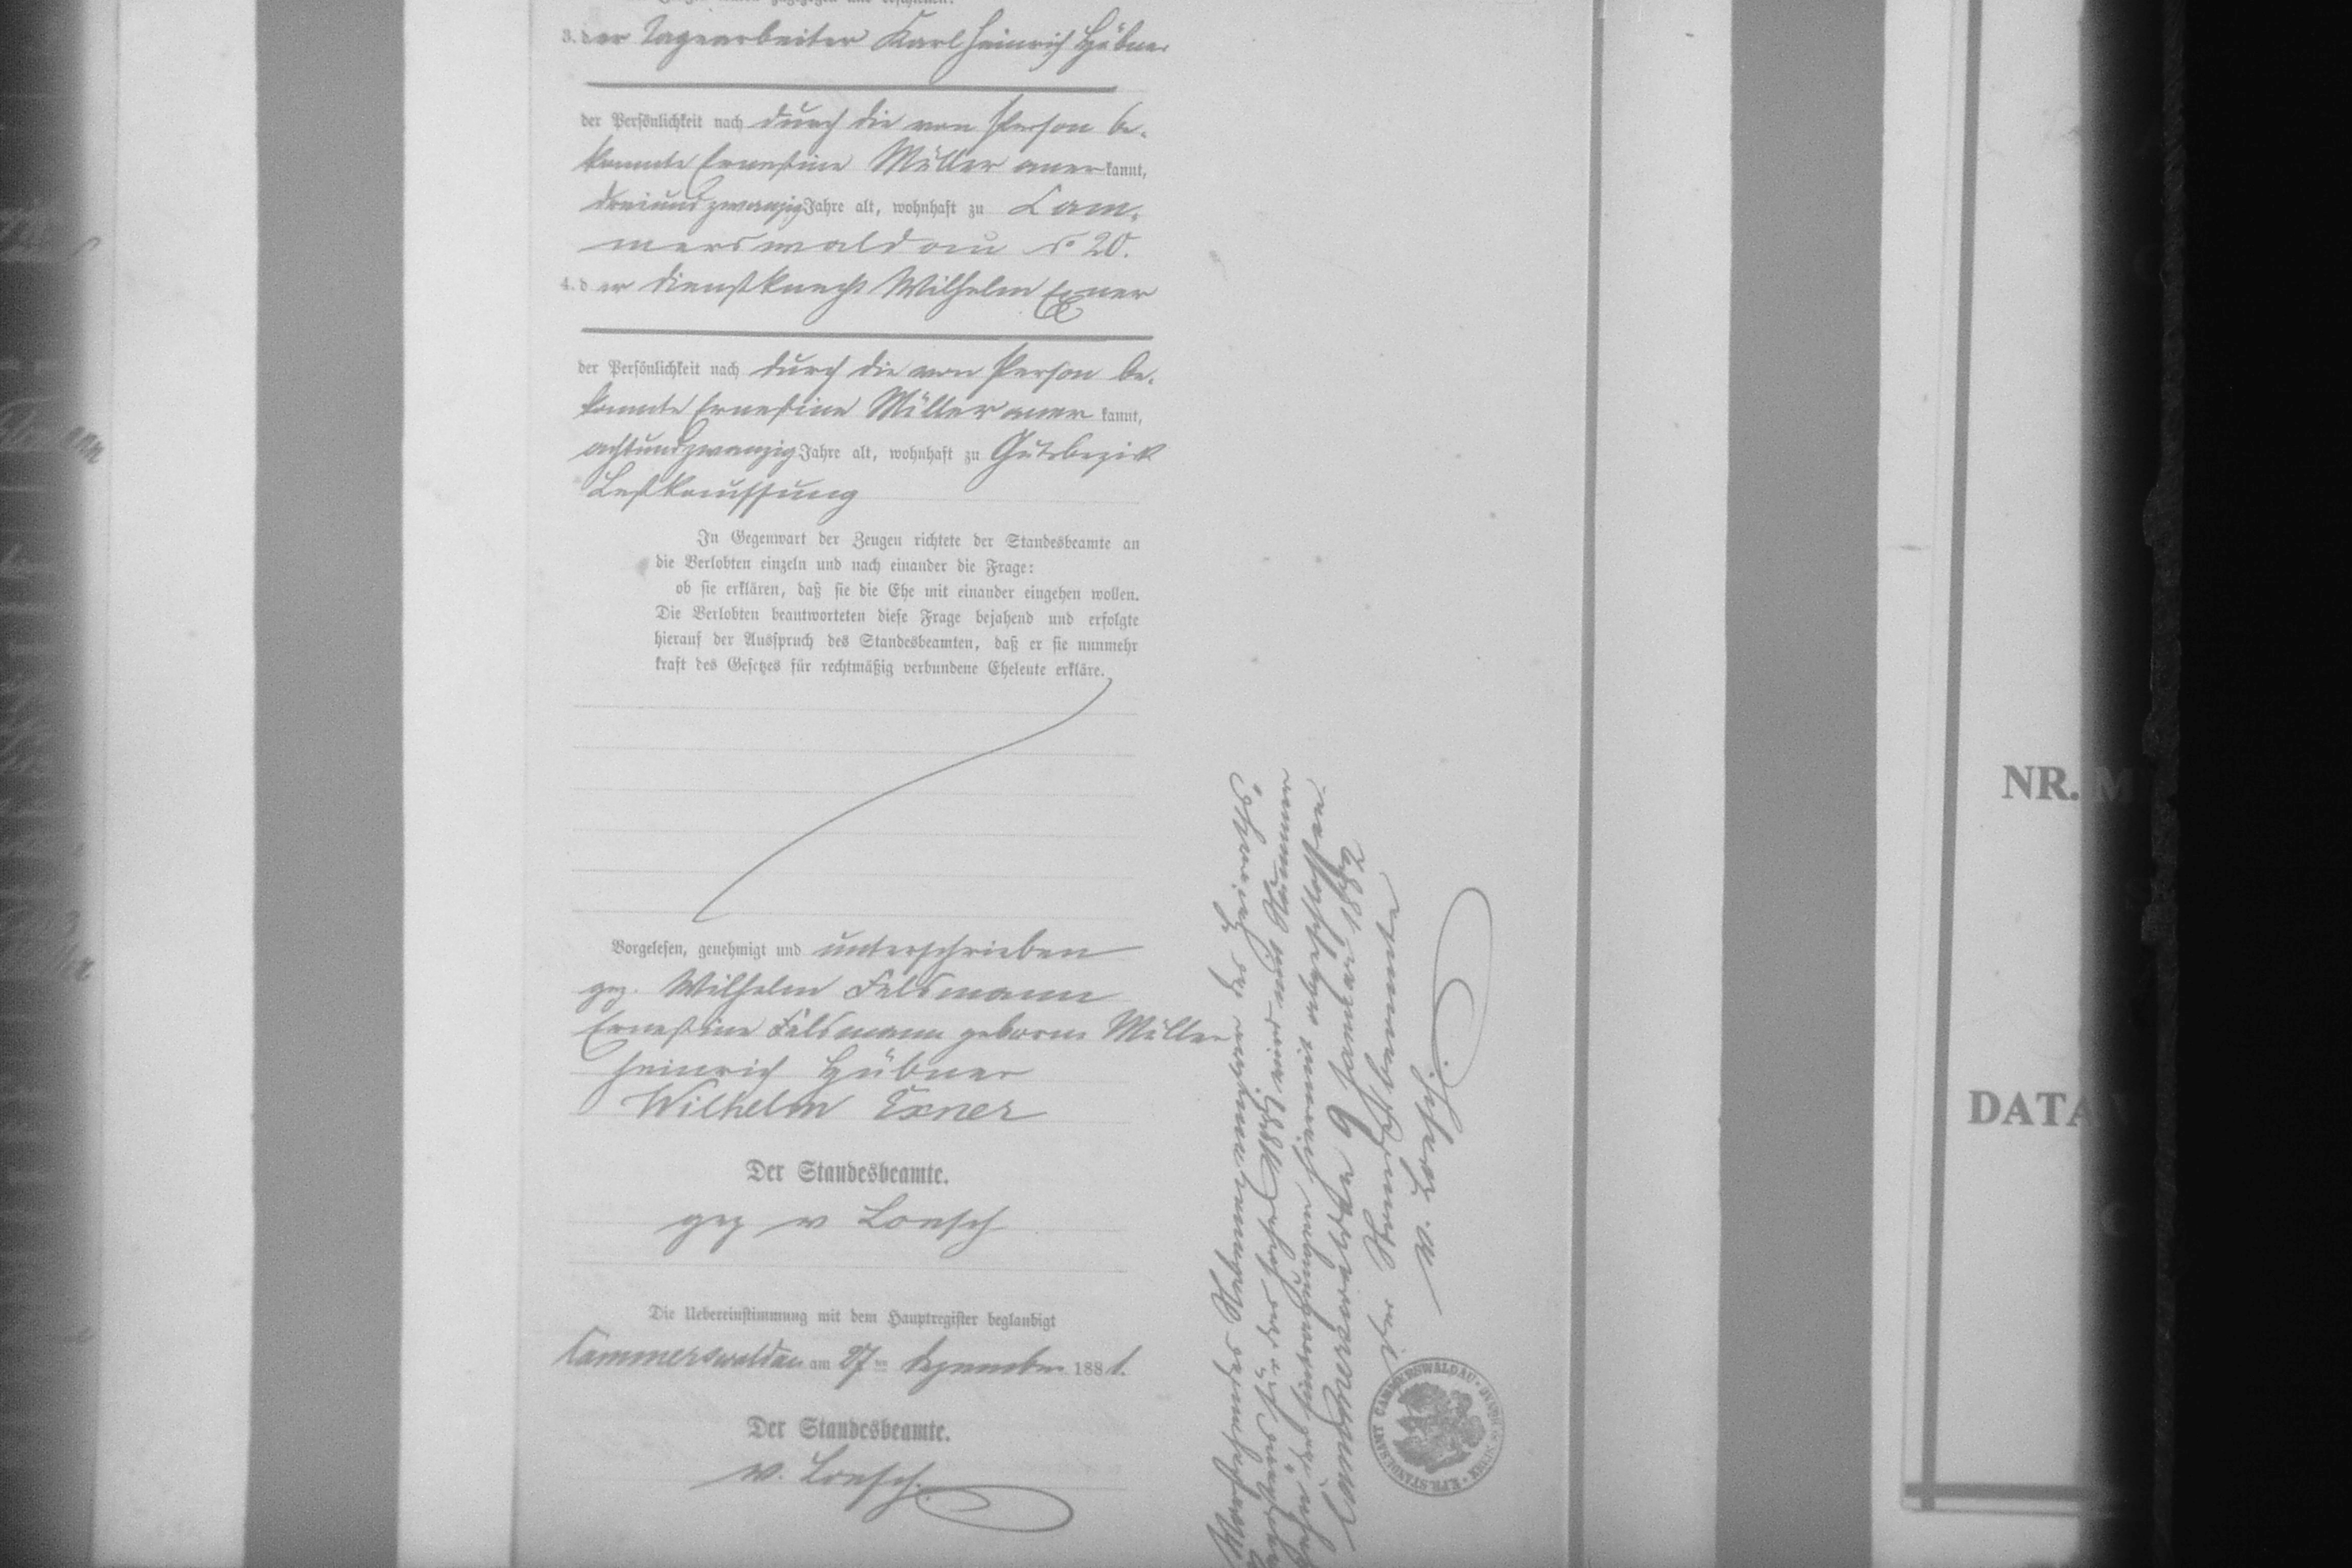 3. der Tagearbeiter Karl Heinrich Hübner
der Persönlichkeit nach durch die von Person be-
kannte Ernestine Müller anerkannt,
dreiundzwanzig Jahre alt, wohnhaft zu Cam-
merswaldau No 20.
4. der Dienstknecht Wilhelm Exner
der Persönlichkeit nach durch die von Person be-
kannte Ernestine Müller anerkannt,
achtundzwanzig Jahre alt, wohnhaft zu Gutsbezirk
In Gegenwart der Zeugen richtete der Standesbeamte an
die Verlobten einzeln und nach einander die Frage:
ob sie erklären, daß sie die Ehe mit einander eingehen wollen.
Die Verlobten beantworteten diese Frage bejahend und erfolgte
hierauf der Ausspruch des Standesbeamten, daß er sie nunmehr
kraft des Gesetzes für rechtmäßig verbundene Eheleute erkläre.
Vorgelesen, genehmigt und unterschrieben
gez. Wilhelm Feldmann
Ernestine Feldmann geborne Müller
Heinrich Hübner
Wilhelm Exner
Der Standesbeamte.
gez v Loesch
Die Uebereinstimmung mit dem Hauptregister beglaubigt
Cammerswaldau am 27ten Dezember 1881.
Der Standesbeamte.
v. Loesch.
Vorstehendes Nebenexemplar des Heiraths-
registers für das Jahr 1881 wird mit Nummer
zehn der Eintragungen hiermit abgeschlossen.
Cammerswaldau 9 Januar 1882
Der Standesbeamte
v. Loesch.
STANDESAMT CAMMERSWALDAU
NR. M
DATA